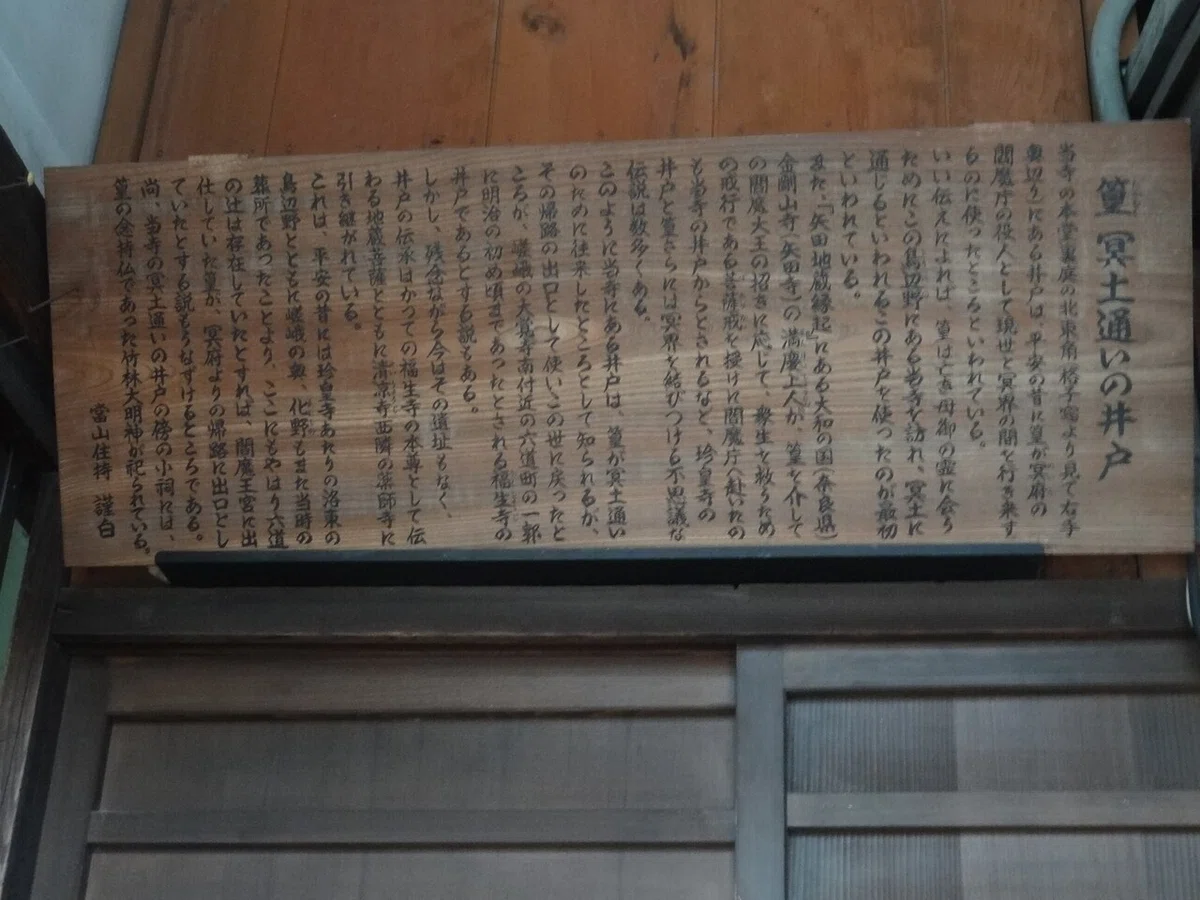 篁 冥土通いの井戸
当寺の本堂裏庭の北東角(格子窓より見て右手
奥辺り)にある井戸は、平安の昔に篁が冥府の
閻魔庁の役人として現世と冥界の間を行き来す
るのに使ったところといわれている。
いい伝えによれば、篁は亡き母御の霊に会う
ためにこの鳥辺野にある当寺を訪れ、冥土に
通じるといわれるこの井戸を使ったのが最初
といわれている。
また、「矢田地蔵縁起」にある大和の国(奈良県)
金剛山寺(矢田寺)の満慶上人が、篁を介して
の閻魔大王の招きに応じて、衆生を救うため
の戒行である菩薩戒を授けに閻魔庁へ赴いたの
も当寺の井戸からとされるなど、珍皇寺の
井戸と篁さらには冥界を結びつける不思議な
伝説は数多くある。
このように当寺にある井戸は、篁が冥土通い
のために往来したところとして知られるが、
その帰路の出口として使いこの世に戻ったと
ころが、嵯峨の大覚寺南付近の六道町の一郭
に明治の初め頃まであったとされる福生寺の
井戸であるとする説もある。
しかし、残念ながら今はその遺址もなく、
井戸の伝承はかつての福生寺の本尊として伝
わる地蔵菩薩とともに清凉寺西隣の薬師寺に
引き継がれている。
これは、平安の昔には珍皇寺あたりの洛東の
鳥辺野とともに嵯峨の奥、化野もまた当時の
葬所であったことより、ここにもやはり六道
の辻は存在していたとすれば、閻魔王宮に出
仕していた篁が、冥府よりの帰路に出口とし
ていたとする説もうなずけるところである。
尚、当寺の冥土通いの井戸の傍の小祠には、
篁の念持仏であった竹林大明神が祀られている。
當山住持 謹白